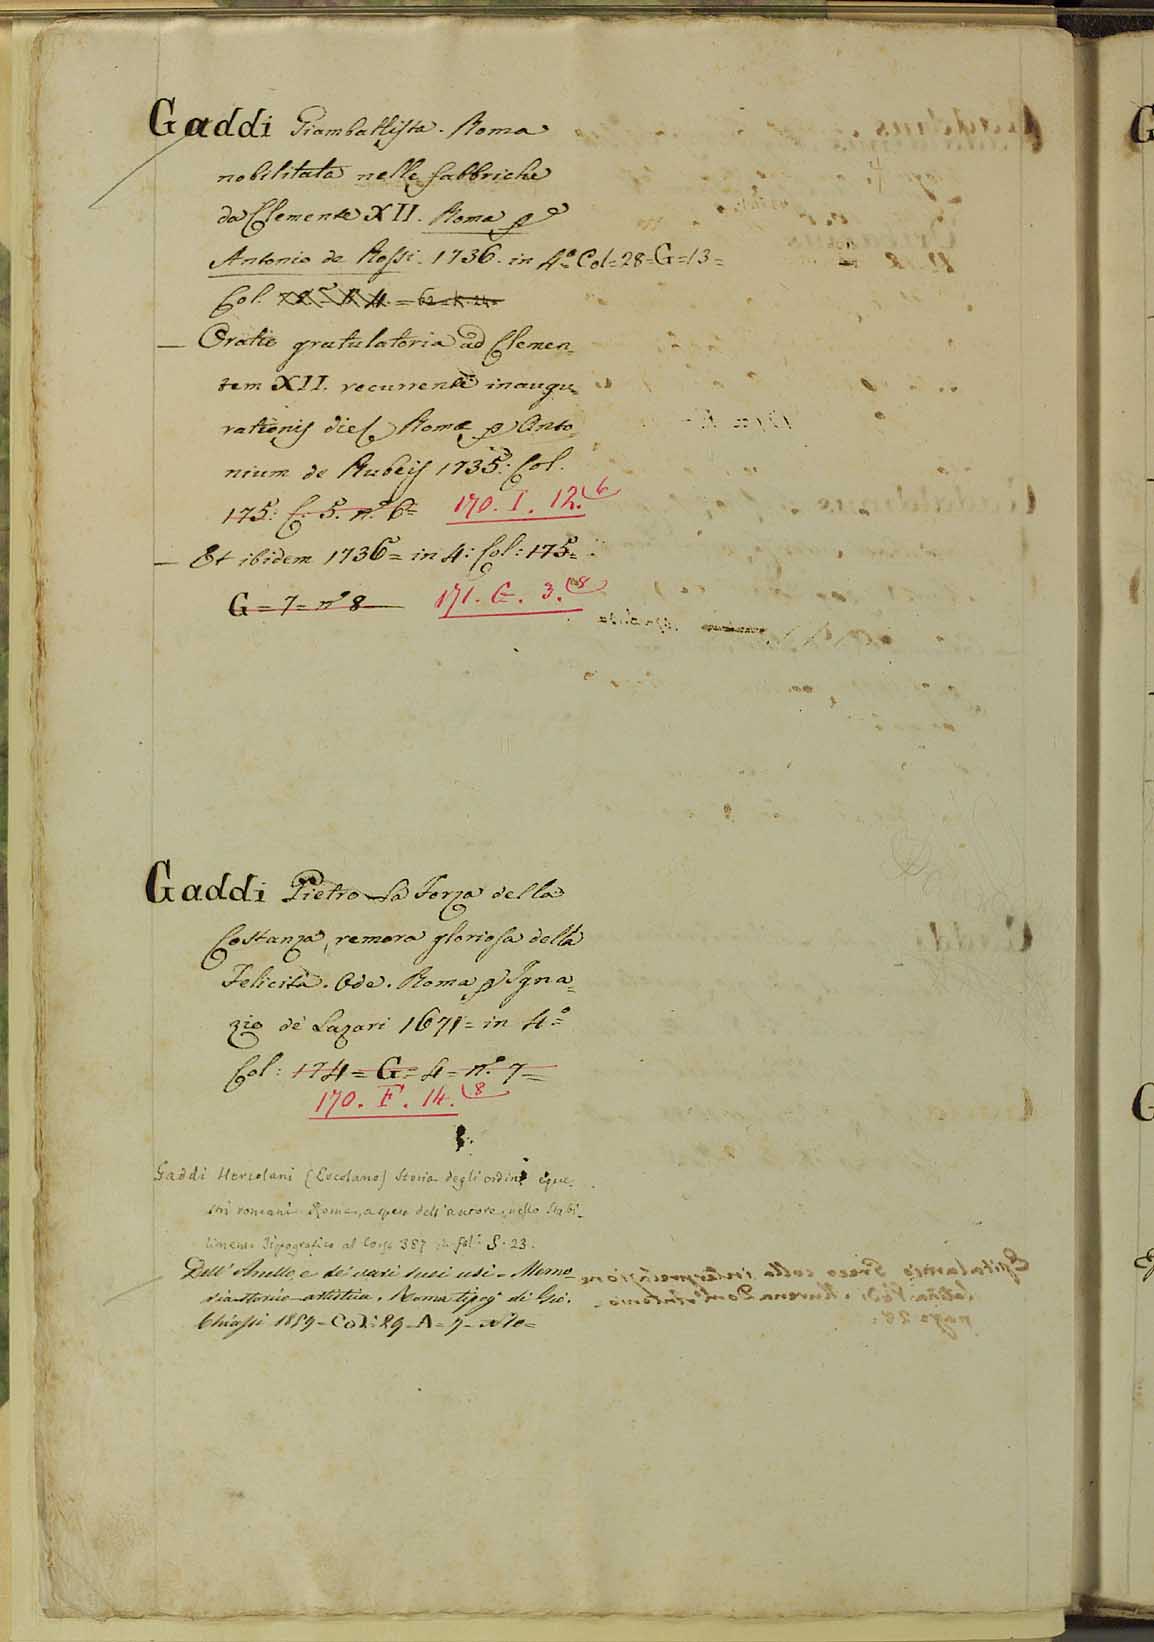 Gaddi Giambattista. Roma
nobilitata nelle fabbriche
da Clemente XII. Roma p
Antonio de Rossi. 1736. in 4.º Col=28=G=13=
Col.
— Oratio gratulatoria ad Clemen=
tem XII. recurrente inaugu=
rationis die Romæ p Anto
nium de Rubeis 1735: Col.
175: C. 5. nº 6= 170. I. 12. 6
— Et ibidem 1736= in 4: Col: 175=
G=7=nº 8 171. G. 3. 8
Gaddi Pietro La Forza della
Costanza, remora gloriosa della
Felicità. Ode. Roma p Igna=
zio de' Lazari 1671= in 4º=
Col: 174=G=4=nº 7=
170. F. 14. 8
Gaddi Hercolani (Ercolano) Storia degli ordini eque=
stri romani. Roma, a spese dell'autore, nello Stabi=
limento Tipografico al Corso 387 in fol. S. 23.
Dell'Anello, e de' varj suoi usi. Memo=
ria storico-artistica. Roma tipog. di Gio.
Chiassi 1859=Col: 29=A=7=